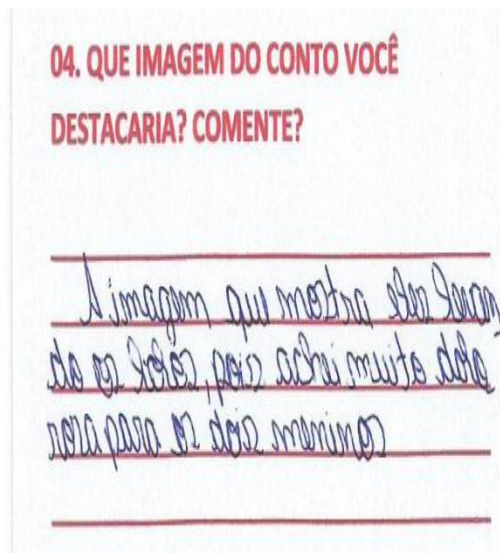 04. QUE IMAGEM DO CONTO VOCÊ
DESTACARIA? COMENTE?
A imagem que mostra eles levan
do os bolos, pois achei muito dolo
rora para os dois meninos